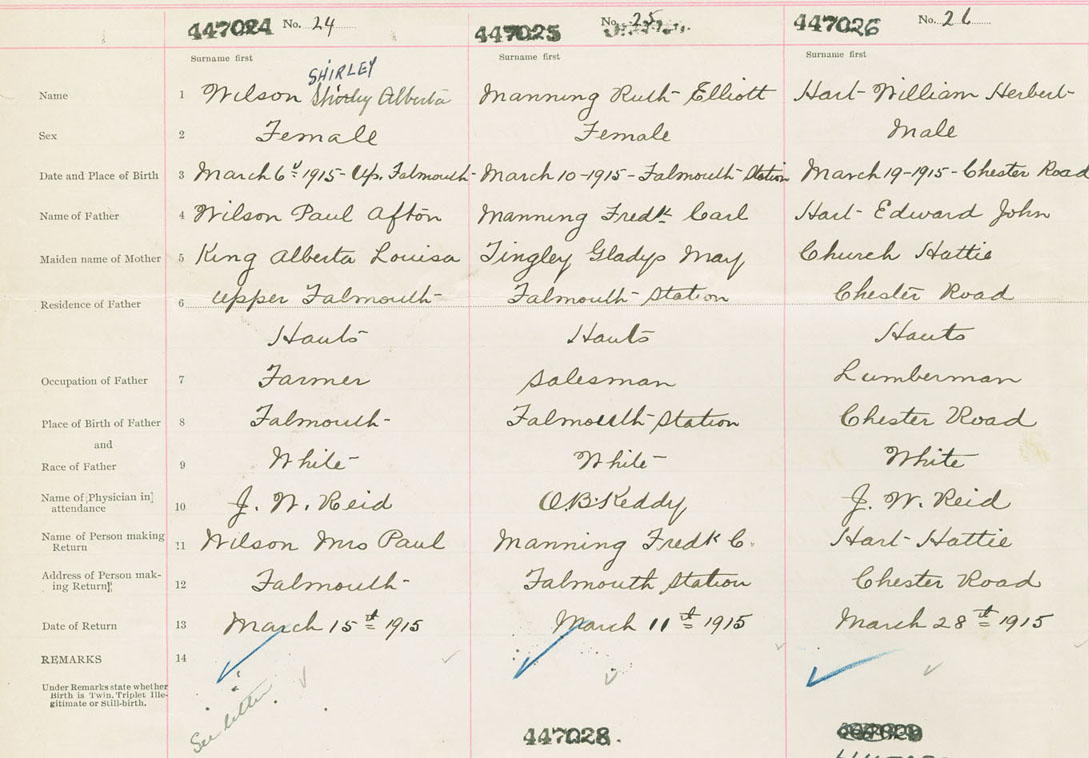 447024 No. 24
447025 No. 25
447026 No. 26
Surname first
Surname first
Surname first
SHIRLEY
Name 1 Wilson Shirley Alberta Manning Ruth Elliott Hart William Herbert
Sex 2 Female Female Male
Date and Place of Birth 3 March 6th 1915 - Up. Falmouth March 10 - 1915 - Falmouth Station March 19 - 1915 - Chester Road
Name of Father 4 Wilson Paul Afton Manning Fredk Carl Hart Edward John
Maiden name of Mother 5 King Alberta Louisa Tingley Gladys May Church Hattie
Residence of Father 6 Upper Falmouth Falmouth Station Chester Road
Hants Hants Hants
Occupation of Father 7 Farmer Salesman Lumberman
Place of Birth of Father 8 Falmouth Falmouth Station Chester Road
and
Race of Father 9 White White White
Name of Physician in
attendance 10 J. W. Reid O.B. Keddy J. W. Reid
Name of Person making
Return 11 Wilson Mrs Paul Manning Fredk C. Hart Hattie
Address of Person mak-
ing Return 12 Falmouth Falmouth Station Chester Road
Date of Return 13 March 15th 1915 March 11th 1915 March 28th 1915
REMARKS 14
Under Remarks state whether
Birth is Twin, Triplet Ille-
gitimate or Still-birth.
See letter
447028.